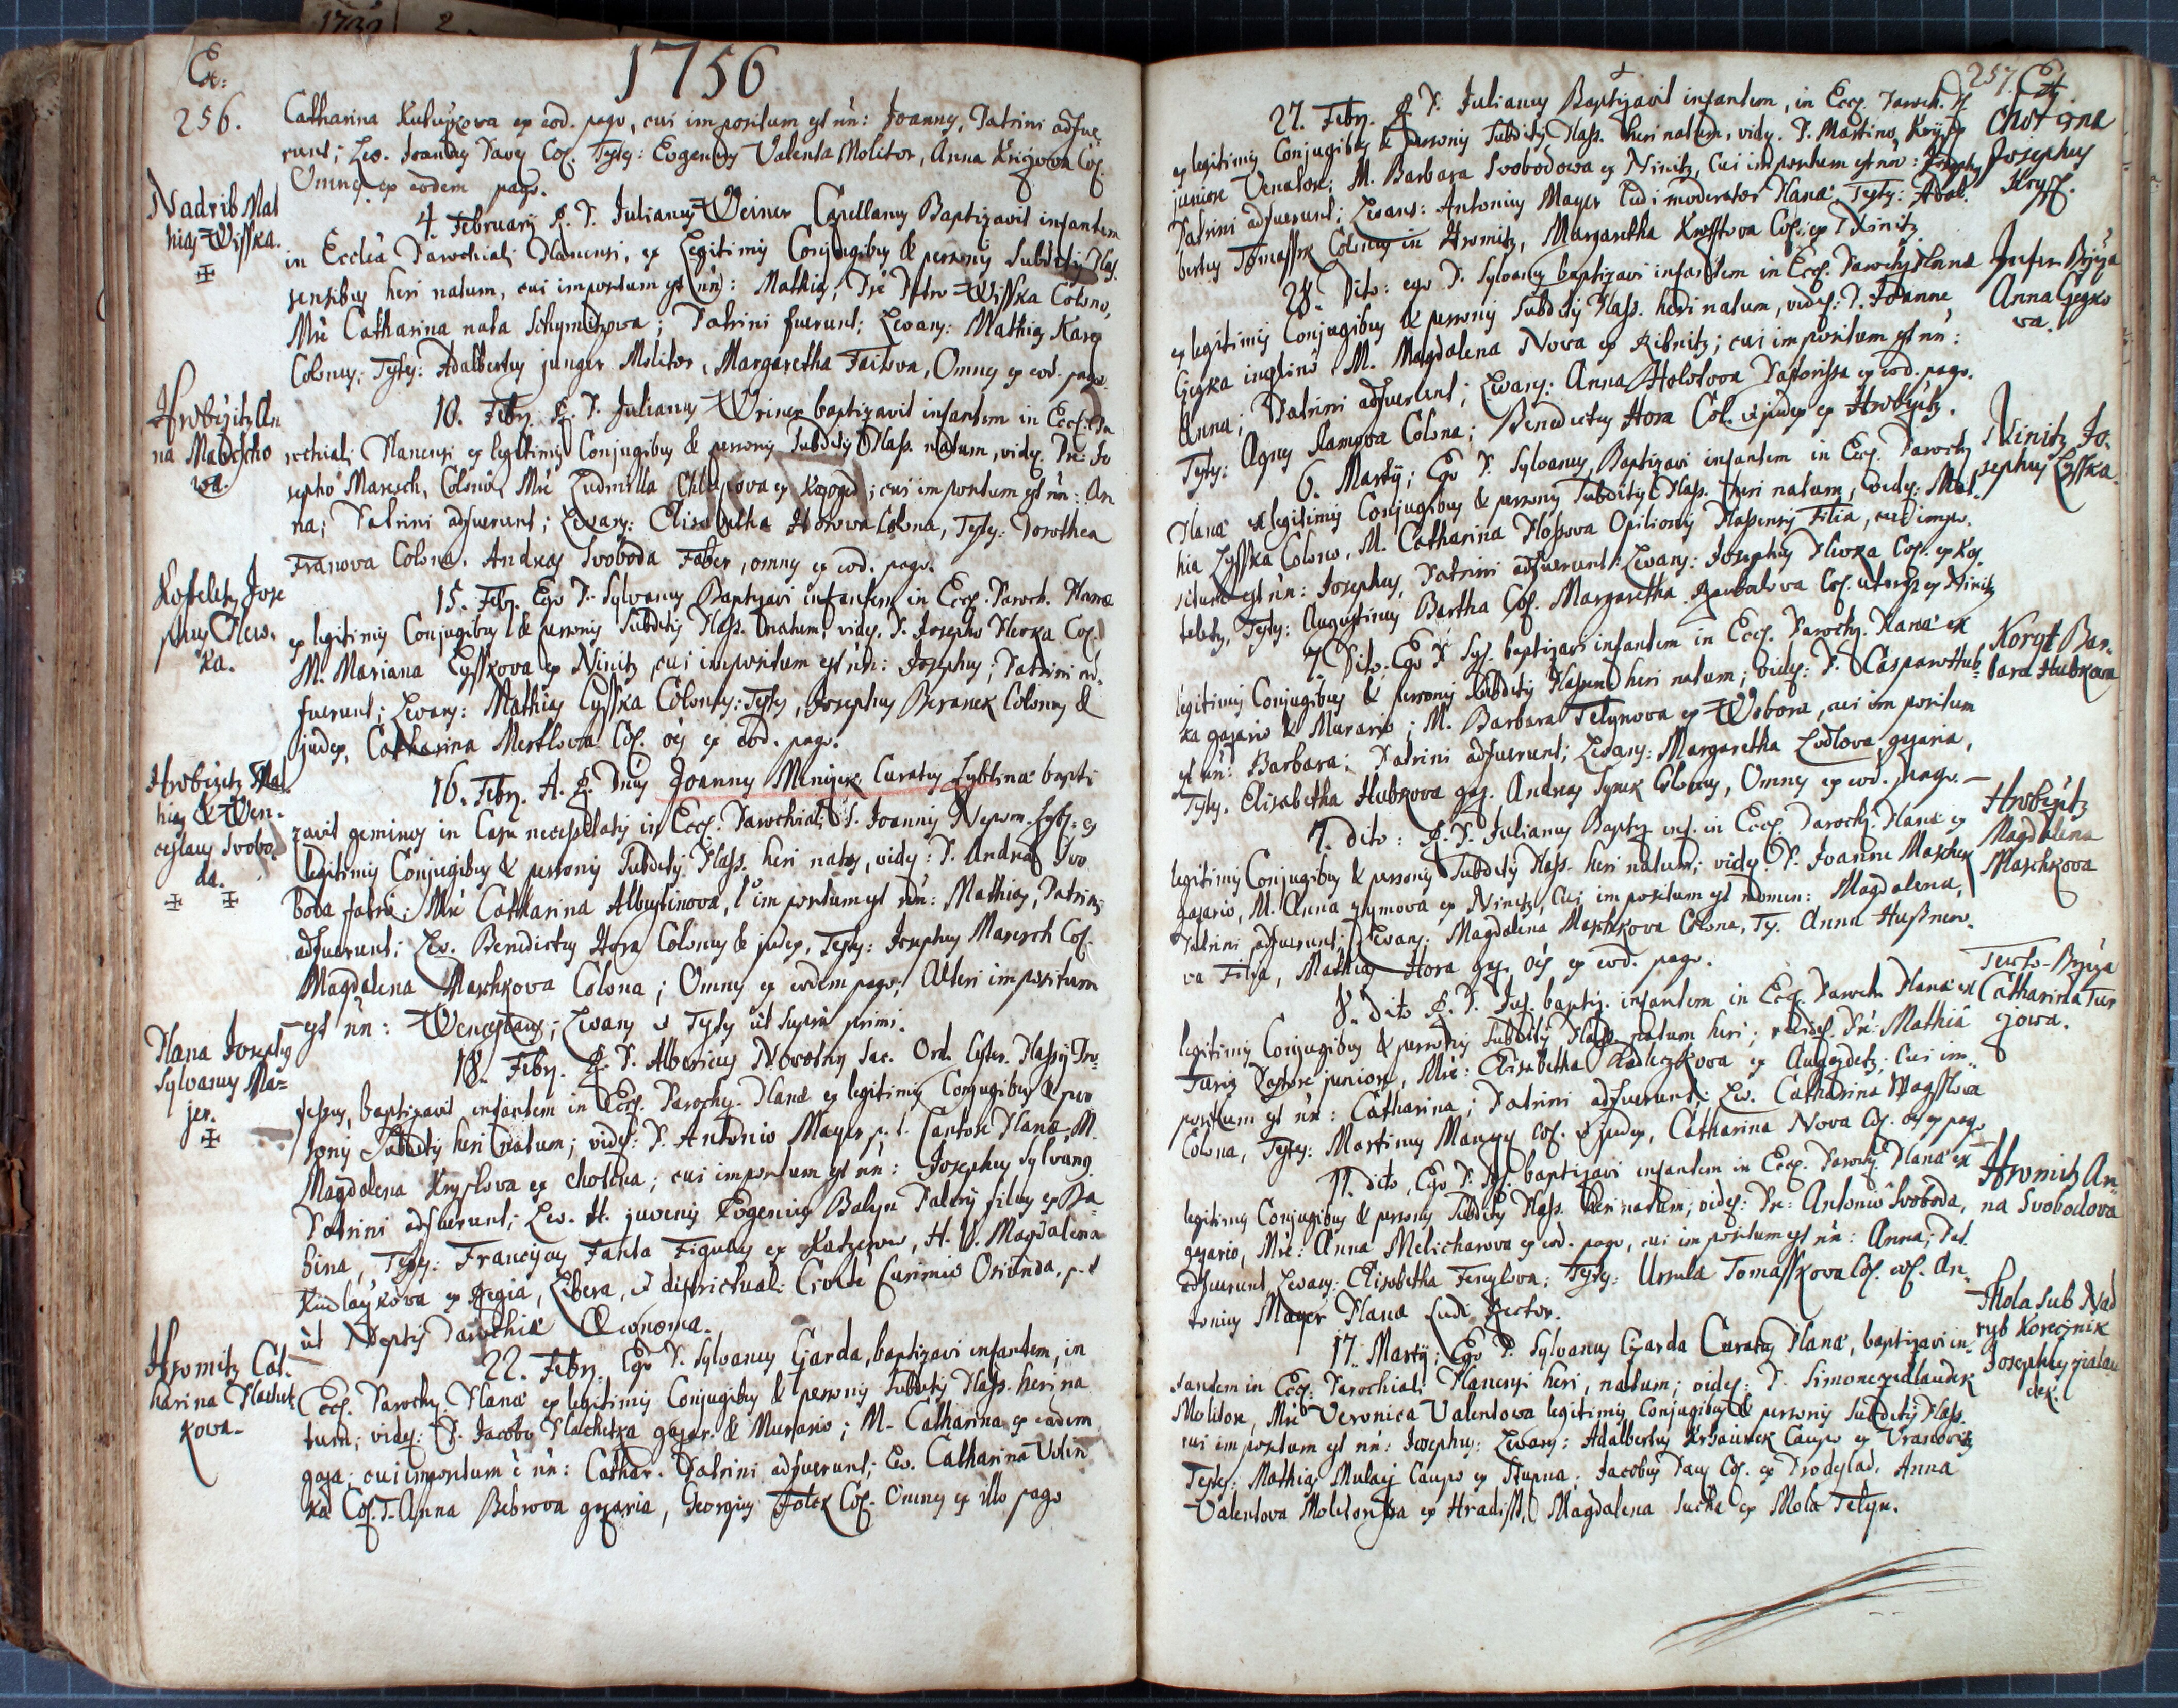 1756
Ex:
256.
Catharina Kuluskova ex eod. pago, cui impositum est nn: Joannes, Patrini adfue
runt; Lev. Joannes Pavey Col. Testes: Evgenius Valenta Molitor, Anna Krigowa Col.
Omnes ex eodem pago.
Nadrib Mat
hias Wisska.
4. February R. P. Julianus Weiner Capellanus Baptizavit infantem
in Ecclia Parochiali Planensi, ex Legitimis Conjugibus & personis Subditis Plas.
sensibus heri natum, cui impositum est nn: Mathias; Pre Petro Wisska Colono,
Mre Catharina nata Schymitzowa; Patrini fuerunt; Levans: Mathias Karez
Colonus; Testes: Adalbertus junger Molitor, Margaretha Faitova, Omnes ex eod. pago
Hrobizitz An
na Marescho
wa.
10. Febr. R. P. Julianus Weiner baptizavit infantem in Eccl. Pa
rochiali Planensi ex legitimis Conjugibus & personis Subditis Plass. natum, vides. Pre Jo
sepho Maresch, Colono, Mre Ludmilla Chlupova ex Kozoged; cui impositum est nn: An
na; Patrini adfuerunt; Levans: Elisabetha Horowa Colona, Testes: Dorothea
Franova Colona, Andreas Svoboda Faber, omnes ex eod. pago.
Kosseletz Jose
phus Hew.
ka.
15. Febr. Ego P. Sylvanus Baptizavi infantem in Eccl. Paroch. Planæ
ex legitimis Conjugibus & personis Subditis Plass. natum, vides. P. Josepho Hevka Col.
M. Mariana Lysskova ex Ninitz, cui impositum est nn: Josephus; Patrini ad
fuerunt; Levans: Mathias Lysska Colonus: Testes, Josephus Beranek Colonus &
judex, Catharina Mertlova Col. oes ex eod. pago.
Hrobizitz Mat
hias & Wen.
ceslaus Svobo
da.
16. Febr. A. R. Dnus Joannes Menizek Curatus Lyblinæ bapti
zavit geminos in Casu necessitatis in Eccl. Parochiali S. Joannis Nepom. Lybl: ex
legitimis Conjugibus & personis Subditis Plass. heri natos, vides: P. Andrea Svo
boda fabro: Mre Catharina Albustinova, 1º impositum est nn: Mathias, Patrini
adfuerunt; Lev. Benedictus Hora Colonus & judex, Testes: Josephus Maresch Col.
Magdalena Maschkova Colona; Omnes ex eodem pago; Alteri impositum
est nn: Wenceslaus; Levans et Testes ut supra primi.
Plana Josephus
Sylvanus Ma=
jer.
18. Febr. R. P. Albericus Novotny Sac. Ord. Cister. Plassy Pro=
fessus, baptizavit infantem in Eccl. Parochy. Planæ ex legitimis Conjugibus & per
sonis Subditis heri natum; vides: P. Antonio Mayer p. t. Cantore Planæ, M.
Magdalena Krysslova ex Chotina; cui impositum est nn: Josephus Sylvanus.
Patrini adfuerunt; Lev. H. juvenis Evgenius Balyn Patris filius ex Ba=
bina, Testes: Franciscus Fahta Figulus ex Katzerow, H. V. Magdalena
Kudlaykova ex Regia, Libera, et districtuali Civitate Curimio Oriunda, p. t
ut Neptis Parochiæ Œconoma.
Hromitz Cat.
harina Plachet
kowa.
22. Febr. Ego P. Sylvanus Czarda, baptizavi infantem, in
Eccl. Parochy. Planæ ex legitimis Conjugibus & personis Subditis Plass. heri na
tum; vides: P. Jacobo Plachetka gazar. & Murario; M. Catharina ex eadem
gaza; cui impositum e nn: Cathar. Patrini adfuerunt; Lev. Catharina Volin
ka Col. T. Anna Bebrova gazaria, Georgius Folck Col. Omnes ex illo pago
257. Ex
27. Febr. R. P. Julianus Baptizavit infantem, in Eccl. Paroch. Pl
ex legitimis Conjugibus & personis Subditis Plass. heri natum, vides. P. Martino Krys
juniore Venatore; M. Barbara Svobodowa ex Ninitz, Cui impositum est nn: Josephus
Patrini adfuerunt; Levans: Antonius Mayer Ludi moderator Planæ, Testes: Adal.
bertus Tomassek Colonus in Hromitz, Margaretha Kreftova Col: ex Ninitz
Chotina
Josephus
Kryss.
28. Dito: ego P. Sylvanus baptizavi infantem in Eccl. Parochy Planæ
ex legitimis Conjugibus & personis Subditis Plass. heri natum, vides: P. Joanne
Czegka inqlino M. Magdalena Nova ex Ribnitz; cui impositum est nn:
Anna; Patrini adfuerunt; Levans: Anna Holotova Pastorissa ex eod. pago.
Testes: Agnes Rampova Colona; Benedictus Hora Col. et judex ex Hrobizitz.
Infer. Brziza
Anna Czegko
va.
6. Marty; Ego P. Sylvanus, Baptizavi infantem in Eccl. Parochy
Planæ ex legitimis Conjugibus & personis Subditis Plass. heri natum, vides: Mat.
hia Lysska Colono, M. Catharina Plossova Opilionis Plassensis Filia, cui impo.
situm est nn: Josephus, Patrini adfuerunt: Levans: Josephus Hevka Col. ex Kos.
seletz, Testes: Augustinus Bartha Col. Margaretha Col. uterque ex Ninitz
Ninitz Jo.
sephus Lysska.
7. Dito. Ego P. Syl. baptizavi infantem in Eccl. Parochy. Planæ ex
legitimis Conjugibus & personis Subditis Plassens. heri natum; vides: P. Casparo Hub=
ka gazario & Murario; M. Barbara Telynova ex Wobora, cui impositum
est nn: Barbara; Patrini adfuerunt; Levans: Margaretha Lodlova gazaria,
Testes, Elisabetha Hubkova gaz. Andreas Synek Colonus, Omnes ex eod. pago.
Koryt Bar.
bara Hubkova
7. dito: R. P. Julianus Baptiz. inf. in Eccl. Parochy. Planæ ex
legitimis Conjugibus & personis Subditis Plass. heri natum; vides. P. Joanne Maschek
gazario, M. Anna Zymova ex Ninitz, Cui impositum est nomen: Magdalena,
Patrini adfuerunt; Levans: Magdalena Maschkova Colona, Ts. Anna Hussnero.
va Filia, Mathias Hora gaz. oes ex eod. pago.
Hrobizitz
Magdalena
Maschkova
8. dito R. P. Jul. baptiz. infantem in Eccl. Paroch. Planæ ex
legitimis Conjugibus & personis Subditis Plass. natum heri; vides. Pre: Mathia
Turiz Pastore juniore, Mre: Elisabetha Radleczkova ex Augezdetz; Cui im=
positum est nn: Catharina; Patrini adfuerunt; Lev. Catharina Wagsslowa
Colona, Testes: Martinus Col. et judex, Catharina Nova Col. oes ex pago.
Terts-Brziza
Catharina Tur
zowa.
11. dito, Ego P. Syl. baptizavi infantem in Eccl. Parochy. Planæ ex
legitimis Conjugibus & personis Subditis Plass. heri natum, vides: Pre: Antonio Svoboda,
gazario, Mre: Anna Melicharova ex eod. pago, cui impositum est nn: Anna; Pat.
adfuerunt, Levans: Elisabetha Fenzlova; Testes: Ursula Tomasskova Col. An.
tonius Mayer Planæ Ludi Rector.
Hromitz An=
na Svobodova
17. Marty; Ego P. Sylvanus Czarda Curatus Planæ, baptizavi in.
fantem in Eccl. Parochiali Planensi heri, natum; vides: P. Simone zedlaudek
Molitore, Mre Veronica Valentowa legitimis Conjugibus & personis Subditis Plass.
cui impositum est nn: Josephus: Levans: Adalbertus Krzaurek Caupo ex Vranovitz
Testes: Mathias Mulacz Caupo ex Stupna, Jacobus Pavy Col. ex Drodeslad, Anna
Valentova Molitorissa ex Hradisst, Magdalena Sucha ex Mola Telyn.
Mola sub Nad
ryb Korecznik
Josephus zialau
dek.